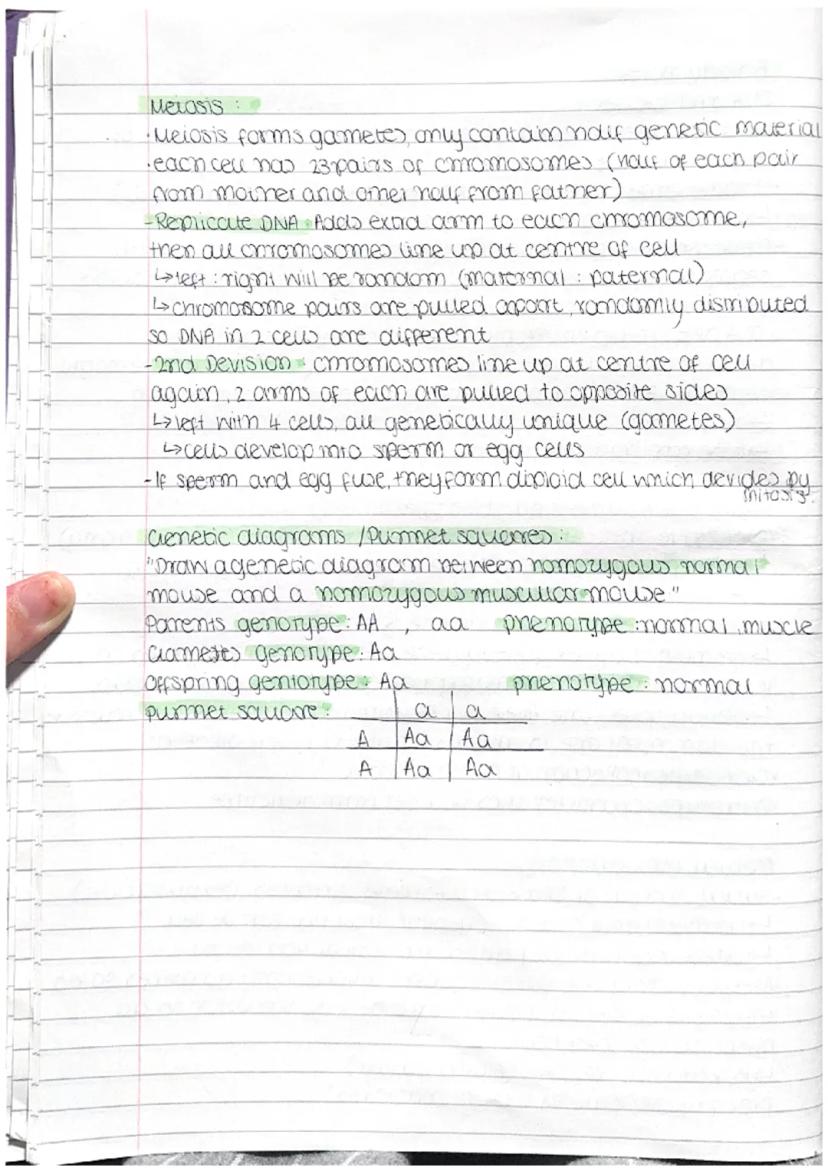 Meiosis :
·Meiosis forms gametes, only contain half genetic material
·each cell has 23 pairs of chromosomes (half of each pair
from mother and other half from father)
-Replicate DNA: Adds extra arm to each chromosome,
then all chromosomes line up at centre of cell
↳left : right will be random (maternal : paternal)
↳chromosome pairs are pulled apart, randomly distributed
so DNA in 2 cells are different
-2nd Devision: chromosomes line up at centre of cell
again, 2 arms of each are pulled to opposite sides
↳left with 4 cells, all genetically unique (gametes)
↳cells develop into sperm or egg cells
-If sperm and egg fuse, they form diploid cell which devides by
mitosis.
Genetic diagrams /Punnet squares:
"Draw a genetic diagram between homozygous normal
mouse and a homozygous muscular mouse"
Parents genotype: AA , aa phenotype: normal, muscle
Gametes genotype: Aa
Offspring gentotype: Aa phenotype: normal
punnet square:
a a
A Aa Aa
A Aa Aa